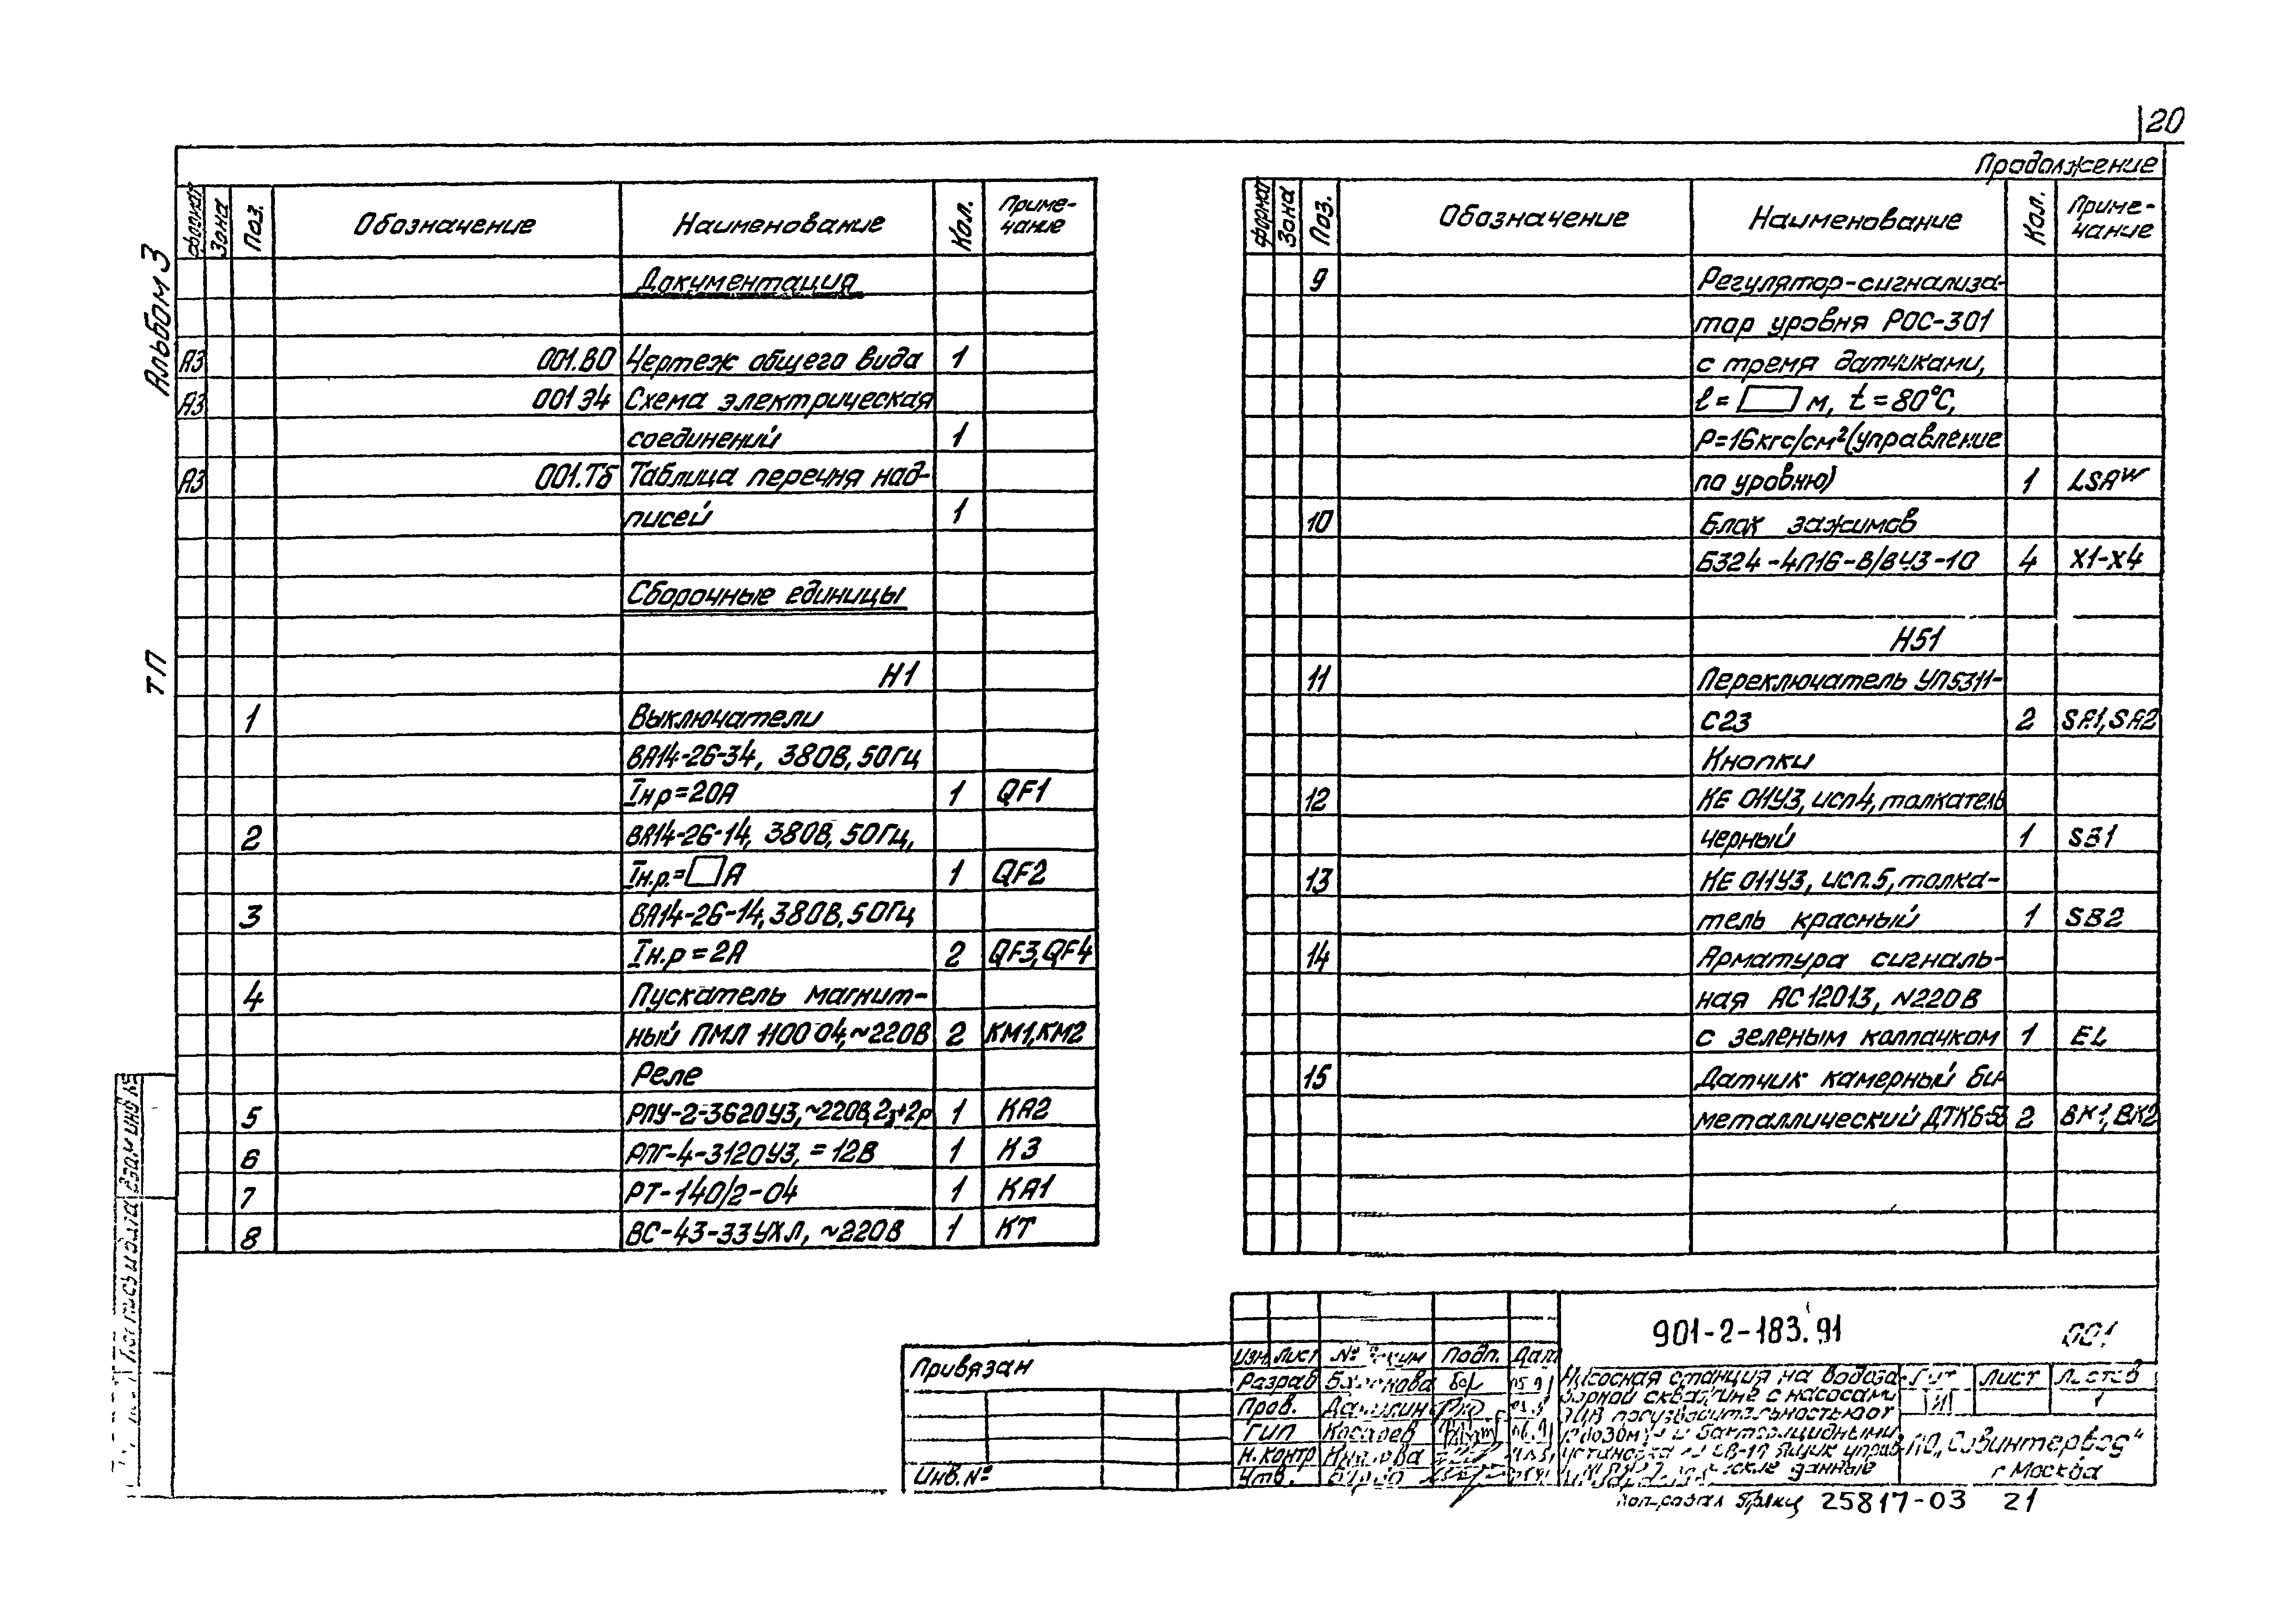 20
Продолжение
Альбом 3
ТП
Формат Зона Поз. Обозначение Наименование Кол. Приме-
чание
Документация
А3 001.ВО Чертеж общего вида 1
А3 001 Э4 Схема электрическая
соединений 1
А3 001.Тб Таблица перечня над-
писей 1
Сборочные единицы
Н1
1 Выключатели
ВА14-26-34, 380В, 50Гц
Iнр=20А 1 QF1
2 ВА14-26-14, 380В, 50Гц,
Iн.р.= А 1 QF2
3 ВА14-26-14, 380В, 50Гц
Iн.р=2А 2 QF3,QF4
4 Пускатель магнит-
ный ПМЛ 1100 04,~220В 2 КМ1,КМ2
Реле
5 РПУ-2-3620У3,~220В,2з+2р 1 КА2
6 РПГ-4-3120У3, =12В 1 К3
7 РТ-140/2-04 1 КА1
8 ВС-43-33УХЛ, ~220В 1 КТ
Формат Зона Поз. Обозначение Наименование Кол. Приме-
чание
9 Регулятор-сигнализа-
тор уровня РОС-301
с тремя датчиками,
l= м, t=80°С,
Р=16кгс/см²(управление
по уровню) 1 LSAW
10 Блок зажимов
БЗ24-4П16-В/ВУ3-10 4 Х1-Х4
Н51
11 Переключатель УП5311-
С23 2 SA1,SA2
Кнопки
12 КЕ 011У3, исп4, толкатель
черный 1 SB1
13 КЕ 011У3, исп.5, толка-
тель красный 1 SB2
14 Арматура сигналь-
ная АС12013, ~220В
с зеленым колпачком 1 EL
15 Датчик камерный би-
металлический ДТКБ-53 2 ВК1,ВК2
Привязан
Инв.№
901-2-183.91 001
Изм. Лист № Подп. Дата
Разраб
Пров.
ГИП Косарев
Н.контр
Утв.
Насосная станция на водоза-
борной скважине с насосами
бактерицидными
ящик управ
данные
Лист Листов
1
ПО „Совинтервод“
г Москва
Копировал 25817-03 21